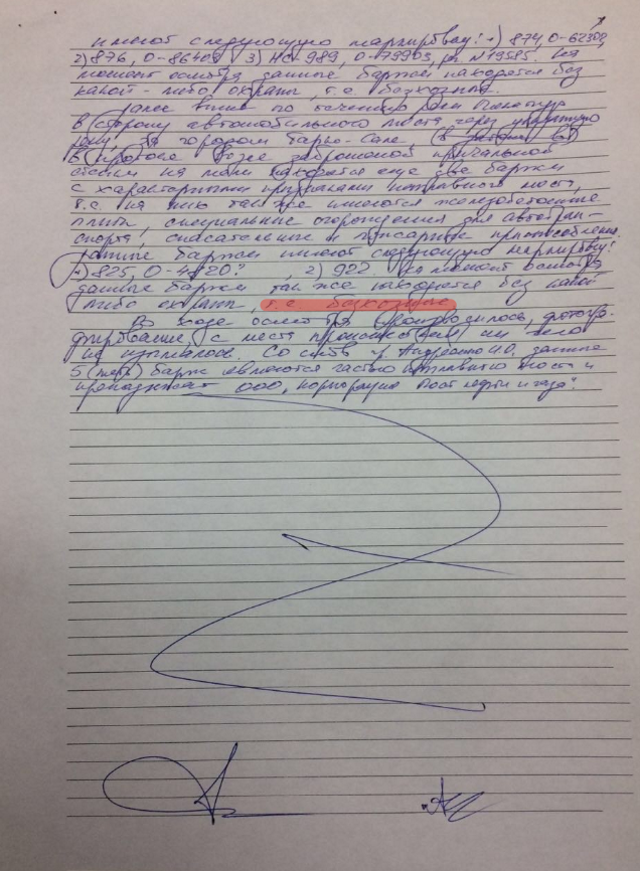 имеют следующую маркировку: 1) 874, 0-62302,
2) 876, 0-86408 3) НС-989, 0-79903, рг N19585. На
момент осмотра данные баржи находятся без
какой-либо охраны, т.е. безхозные.
Далее вниз по течению реки
в сторону автомобильного моста через
реку, за городом
в протоке возле заброшеной причальной
на мели находятся еще две баржи
с характерными признаками наплавного моста,
т.е. на них так же имеются железобетонные
плиты, специальные огорождения для автотран-
спорта, спасательные и пожарные приспособления.
данные баржи имеют следующую маркировку:
1) 825, 0-4820? , 2) 922 На момент осмотра
данные баржи так же находятся без какой
либо охраны, т.е. безхозные
В ходе осмотра производилось, фотогра-
фирование, с места происшествия ни чего
не изымалось. Со слов гр. данные
5 (пять) барж являются частью наплавного моста и
принадлежат ООО, корпорация Рост нефти и газа".